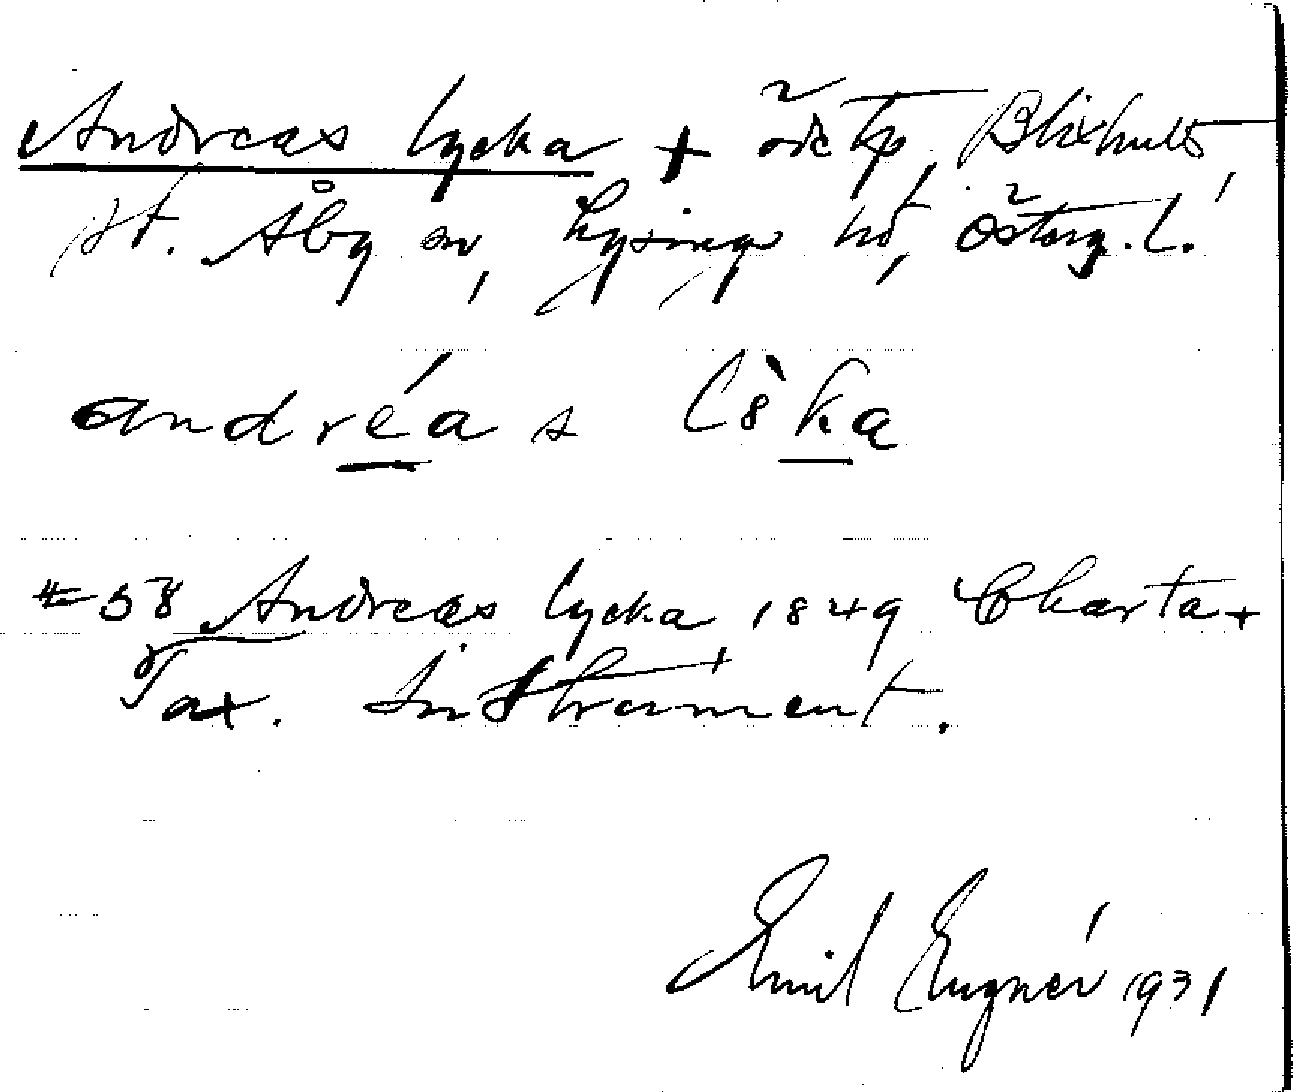 Andreas Lycka + öde tp, Blixhult,
St. Åby sn, Lysings hd, Östergl.
andréas lǐka
#58 Andreas Lycka 1849 Charta +
Tax. Instrument.
Emil Eugnér 1931